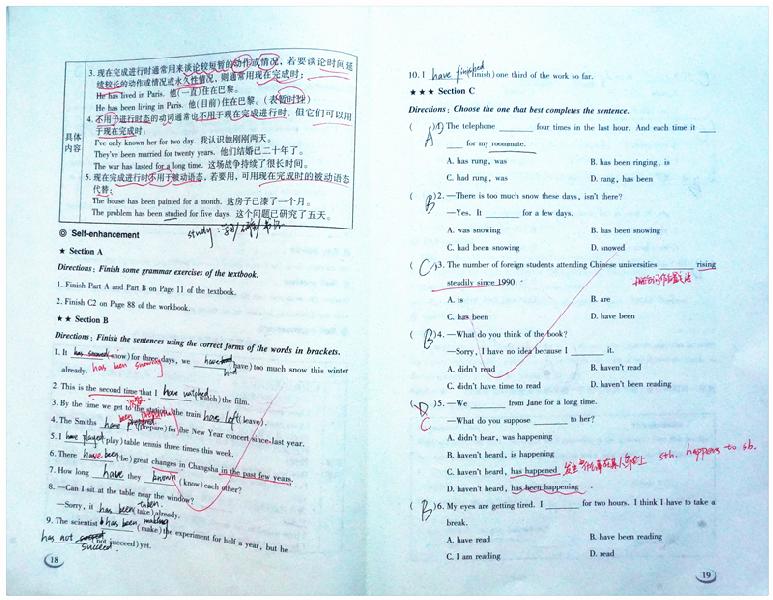 具体
内容
3. 现在完成进行时通常用来谈论较短暂的动作或情况,若要谈论时间延
续较长的动作或情况或永久性情况,则通常用现在完成时:
He has lived is Paris. 他(一直)住在巴黎。
He has been living in Paris. 他(目前)住在巴黎。(表暂时性)
4. 不用于进行时态的动词通常也不用于现在完成进行时,但它们可以用
于现在完成时:
I've only known her for two day. 我认识她刚刚两天。
They've been married for twenty years. 他们结婚已二十年了。
The war has lasted for a long time. 这场战争持续了很长时间。
5. 现在完成进行时不用于被动语态,若要用,可用现在完成时的被动语态
代替:
The house has been painted for a month. 这房子已漆了一个月。
The problem has been studied for five days. 这个问题已研究了五天。
study:
◎ Self-enhancement
★ Section A
Directions: Finish some grammar exercises of the textbook.
1. Finish Part A and Part B on Page 11 of the textbook.
2. Finish C2 on Page 88 of the workbook.
★★ Section B
Directions: Finish the sentences using the correct forms of the words in brackets.
1. It has snowed (snow) for three days, we have had (have) too much snow this winter
already. has been snowing
2. This is the second time that I have watched (watch) the film.
3. By the time we get to the station, the train has left (leave).
been preparing
4. The Smiths have prepared (prepare) for the New Year concert since last year.
5. I have played (play) table tennis three times this week.
6. There have been (be) great changes in Changsha in the past few years.
7. How long have they known (know) each other?
8. —Can I sit at the table near the window?
—Sorry, it has been taken (take) already.
9. The scientist has been making (make) the experiment for half a year, but he
has not succeed (not succeed) yet.
succeed
18
10. I have finished (finish) one third of the work so far.
★★★ Section C
Directions: Choose the one that best completes the sentence.
( A ) 1. The telephone ______ four times in the last hour. And each time it ___
___ for my roommate.
A. has rung, was B. has been ringing, is
C. had rung, was D. rang, has been
( B ) 2. —There is too much snow these days, isn't there?
—Yes. It ______ for a few days.
A. was snowing B. has been snowing
C. had been snowing D. snowed
( C ) 3. The number of foreign students attending Chinese universities ______ rising
steadily since 1990.
A. is B. are
C. has been D. have been
( B ) 4. —What do you think of the book?
—Sorry, I have no idea because I ______ it.
A. didn't read B. haven't read
C. didn't have time to read D. haven't been reading
( D ) 5. —We ______ from Jane for a long time.
C —What do you suppose ______ to her?
A. didn't hear, was happening
B. haven't heard, is happening
C. haven't heard, has happened sth. happens to sb.
D. haven't heard, has been happening
( B ) 6. My eyes are getting tired. I ______ for two hours. I think I have to take a
break.
A. have read B. have been reading
C. I am reading D. read
19